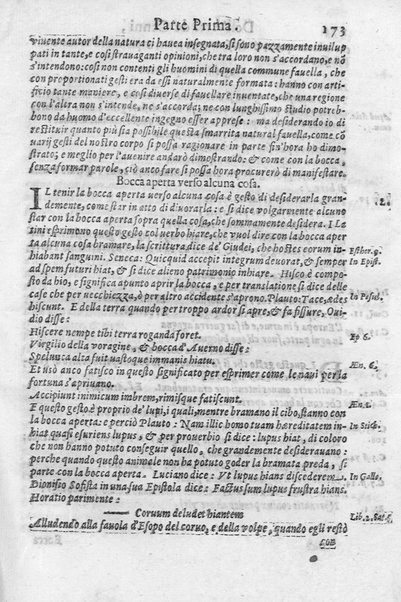 Parte Prima. 173
vivente autor della natura ci havea insegnata, si sono pazzamente invilup
pati in tante, e cosi stravaganti opinioni, che tra loro non s'accordano, e nõ
s'intendono: cosi non contenti gli huomini di quella commune favella, che
con proportionati gesti era da essi naturalmente formata: hanno con arti-
ficio tante maniere, e cosi diverse di favellare inventate, che una regione
con l'altra non s'intende, ne s'accorda; ne con lunghissimo studio potreb-
bono da huomo d'eccellente ingegno esser apprese: ma desiderando io di
restituir quanto più sia possibile questa smarrita natural favella, come cō
varij gesti del nostro corpo si possa ragionare in parte sin'hora ho dimo-
strato; e meglio per l'avenire andarò dimostrando: & come con la bocca,
senza formar parole, ciò anto fare si possa hora procurerò di manifestare.
Bocca aperta verso alcuna cosa.
IL tenir la bocca aperta verso alcuna cosa è gesto di desiderarla gran- .2.
demente, come star in atto di divorarla: e si dice volgarmente alcuno
star con la bocca aperta sopra quella cosa, che sommamente desidera. I La
tini espressero questo gesto col verbo hiare, che vuol dire con la bocca aper
ta alcuna cosa bramare, la scrittura, dice de' Giudei, che hostes eorum in- Esther.9.
hiabant sanguini. Seneca: Quicquid accepit integrum devorat, & semper In Epist.
ad spem futuri hiat, & si dice alieno patrimonio inhiare. Hisco è compo-
sto da hio, e significa apunto aprir la bocca, e per translatione si dice delle
case che per vecchiezza, ò per altro accidente s'aprono. Plauto: Tace, ædes In Pseud.
hiscunt. E della terra quando per troppo ardor si apre, & fa fissure, Ovi-
dio disse:
Hiscere nempe tibi terra roganda foret. Ep. 6.
Virgilio della voragine, & bocca d'Averno disse:
Spelunca alta fuit vastoque immanis hiatu. Æn. 6.
Et usò anco fatisco in questo significato per esprimer come le navi per la
fortuna s'aprivano.
Accipiunt inimicum imbrem, rimisque fatiscunt. Æn. 1.
E questo gesto è proprio de' lupi, i quali, mentre bramano il cibo, stanno con
la bocca aperta: e perciò Plauto: Nam illic homo tuam hereditatem in- In Stich.
hiat quasi esuriens lupus, & per proverbio si dice: lupus hiat, di coloro
che non hanno potuto conseguir quello, che grandemente desideravano:
perche quando questo animale non ha potuto goder la bramata preda, si
parte con la bocca aperta. Luciano dice: Ut lupus hians discederem. In Gallo.
Dionisio Sofista in una sua Epistola dice: Factus sum lupus frustra hians.
Horatio parimente:
Corvum deludet hiantem Lib. 2. Sat. 5.
Alludendo alla favola d'Esopo del corvo, e della volpe, quando egli restò
con